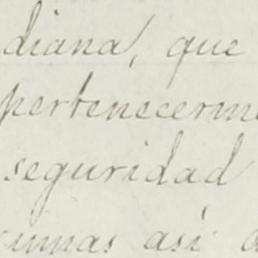 diana, que
pertenecerme
seguridad
así